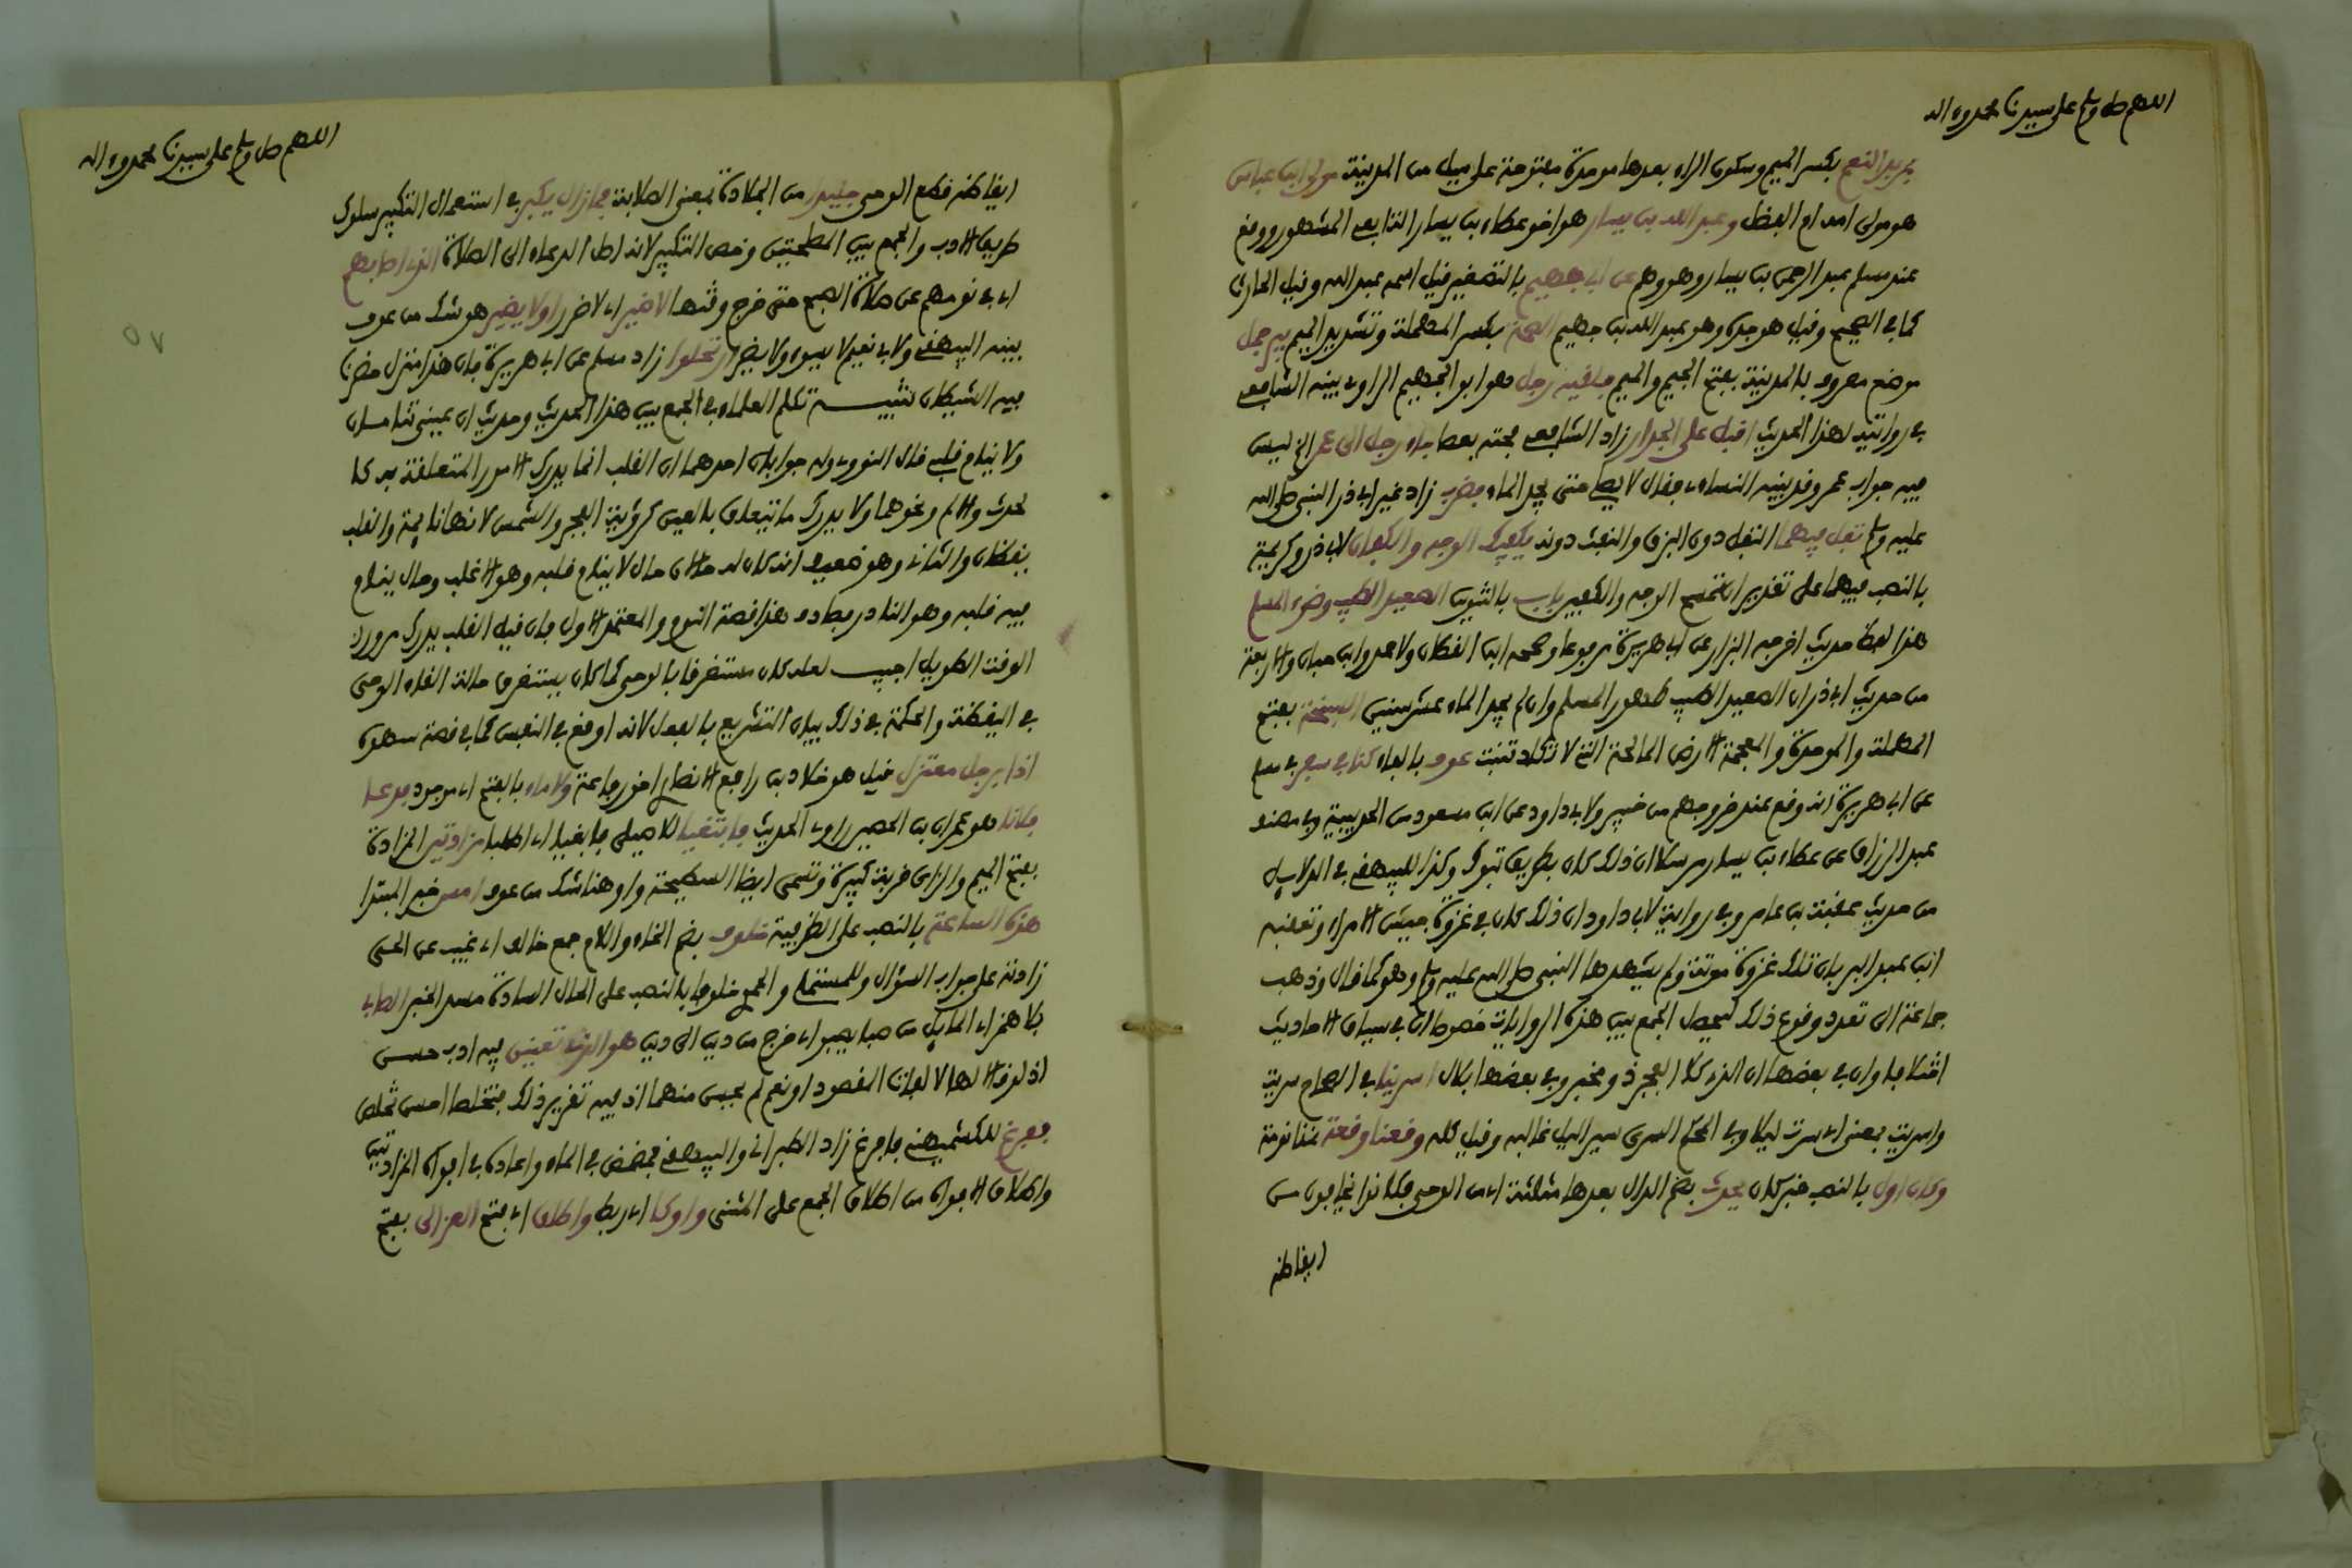 اللهم صل وسلم على سيدنا محمد وءاله
بمربد النعم بكسر الميم وسكون الراء بعدها موحدة مفتوحة على ميل من المدينة مولى ابن عباس
هو مولى امه ام الفضل وعبد الله بن يسار هو اخو عطاء بن يسار التابعى المشهور ووقع
عند مسلم عبد الرحمن بن يسار وهو وهم على ابى جهيم بالتصغير قيل اسمه عبد الله وقيل الحارث
كما فى الصحيح وقيل هو جده وهو عبد الله بن جهيم الصمة بكسر المهملة وتشديد الميم بير جمل
موضع معروف بالمدينة بفتح الجيم والميم فلقيه رجل هو ابو الجهيم الراوى بينه الشافعى
فى روايته لهذا الحديث اقبل على الجدار زاد الشافعى فحته بعصا جاء رجل الى عمر الخ ليس
فيه جواب عمر وقد بينه النساءى فقال لا تصل حتى تجد الماء فضرب زاد غير ابى ذر النبى صلى الله
عليه وسلم تفل فيهما التفل دون البزق والنفث دونه يكفيك الوجه والكفان لابى ذر وكريمة
بالنصب فيهما على تقدير ان تمسح الوجه والكفين باب بالتنوين الصعيد الطيب وضوء المسلم
هذا لفظ حديث اخرجه البزار عن ابى هريرة مرفوعا وصححه ابن القطان ولاحمد وابن حبان والاربعة
من حديث ابى ذر ان الصعيد الطيب طهور المسلم وان لم يجد الماء عشر سنين السبخة بفتح
المهملة والموحدة والمعجمة الارض المالحة التى لا تكاد تنبت عوف بالفاء كنا فى سفر فى مسلم
عن ابى هريرة انه وقع عند خروجهم من خيبر ولابى داود عن ابن مسعود من الحديبية وفى مصنف
عبد الرزاق عن عطاء بن يسار مرسلا ان ذلك كان بطريق تبوك وكذا للبيهقى فى الدلايل
من حديث عقبة بن عامر وفى رواية لابى داود ان ذلك كان فى غزوة جيش الامراء وتعقبه
ابن عبد البر بان تلك غزوة موتة ولم يشهدها النبى صلى الله عليه وسلم وهو كما قال وذهب
جماعة الى تعدد وقوع ذلك ليحصل الجمع بين هذه الروايات خصوصا ان فى سياق الاحاديث
اختلافا وان فى بعضها ان الذى كلا الفجر ذو مخبر وفى بعضها بلال اسرينا فى الصحاح سريت
واسريت بمعنى اى سرت ليلا وفى المحكم السرى سير الليل غالبه وقيل كله وقعنا وقعة نمنا نومة
وكان اول بالنصب خبر كان يحدث بضم الدال بعدها مثلثة اى من الوحى فكانوا يخافون من
ايقاظه
اللهم صل وسلم على سيدنا محمد وءاله
٥٧
ايقاظه قطع الوحى جليدا من الجلادة بمعنى الصلابة فما زال يكبر فى استعمال التكبير سلوك
طريق الادب والجمع بين المصلحتين وخص التكبير لانه اصل الدعاء الى الصلاة الذى اصابهم
اى فى نومهم عن صلاة الصبح حتى خرج وقتها لا ضير اى لا ضرر او لا يضير هو شك من عوف
بينه البيهقى ولابى نعيم لا يسوء ولا يضير ارتحلوا زاد مسلم عن ابى هريرة فان هذا منزل حضرنا
فيه الشيطان تنبيه تكلم العلماء فى الجمع بين هذا الحديث وحديث ان عينى تنامان
ولا ينام قلبى قال النووى وله جوابان احدهما ان القلب انما يدرك الامور المتعلقة به كا
لحدث والالم ونحوهما ولا يدرك ما يتعلق بالعين كرؤية الفجر والشمس لانها نايمة والقلب
يقظان والثانى وهو ضعيف انه كان له حالان حال لا ينام قلبه وهو الاغلب وحال ينام
فيه قلبه وهو النادر فصادف هذا قصة النوم والمعتمد الاول فان قيل القلب يدرك مرور
الوقت الطويل اجيب لعله كان مستغرقا بالوحى كما كان يستغرق حالة القاء الوحى
فى اليقظة والحكمة فى ذلك بيان التشريع بالفعل لانه اوقع فى النفس كما فى قصة سهوه
اذا برجل معتزل قيل هو خلاد بن رافع الانصارى اخو رفاعة ولا ماء بالفتح اى موجود فدعا
فلانا هو عمران بن الحصين راوى الحديث فابتغيا للاصيلى فابغيا اى اطلبا مزادتين المزادة
بفتح الميم والزاى قربة كبيرة وتسمى ايضا السطيحة واو هنا شك من عوف امس خبر المبتدا
هذه الساعة بالنصب على الظرفية خلوف بضم الخاء واللام جمع خالف اى غيب عن الحى
زادته على جواب السؤال وللمستملى والحموى خلوفا بالنصب على الحال السادة مسد الخبر الصابى
بلا همز اى المايل من صبا يصبو اى خرج من دين الى دين هو الذى تعنين فيه ادب حسن
اذ لو قالا لها لا لفات المقصود او نعم لم يحسن منهما اذ فيه تقرير ذلك فتخلصا احسن تخلص
ففرغ للكشميهنى فافرغ زاد الطبرانى والبيهقى فمضمض فى الماء واعاده فى افواه المزادتين
واطلاق الافواه من اطلاق الجمع على المثنى واوكا اى ربط واطلق اى فتح العزالى بفتح